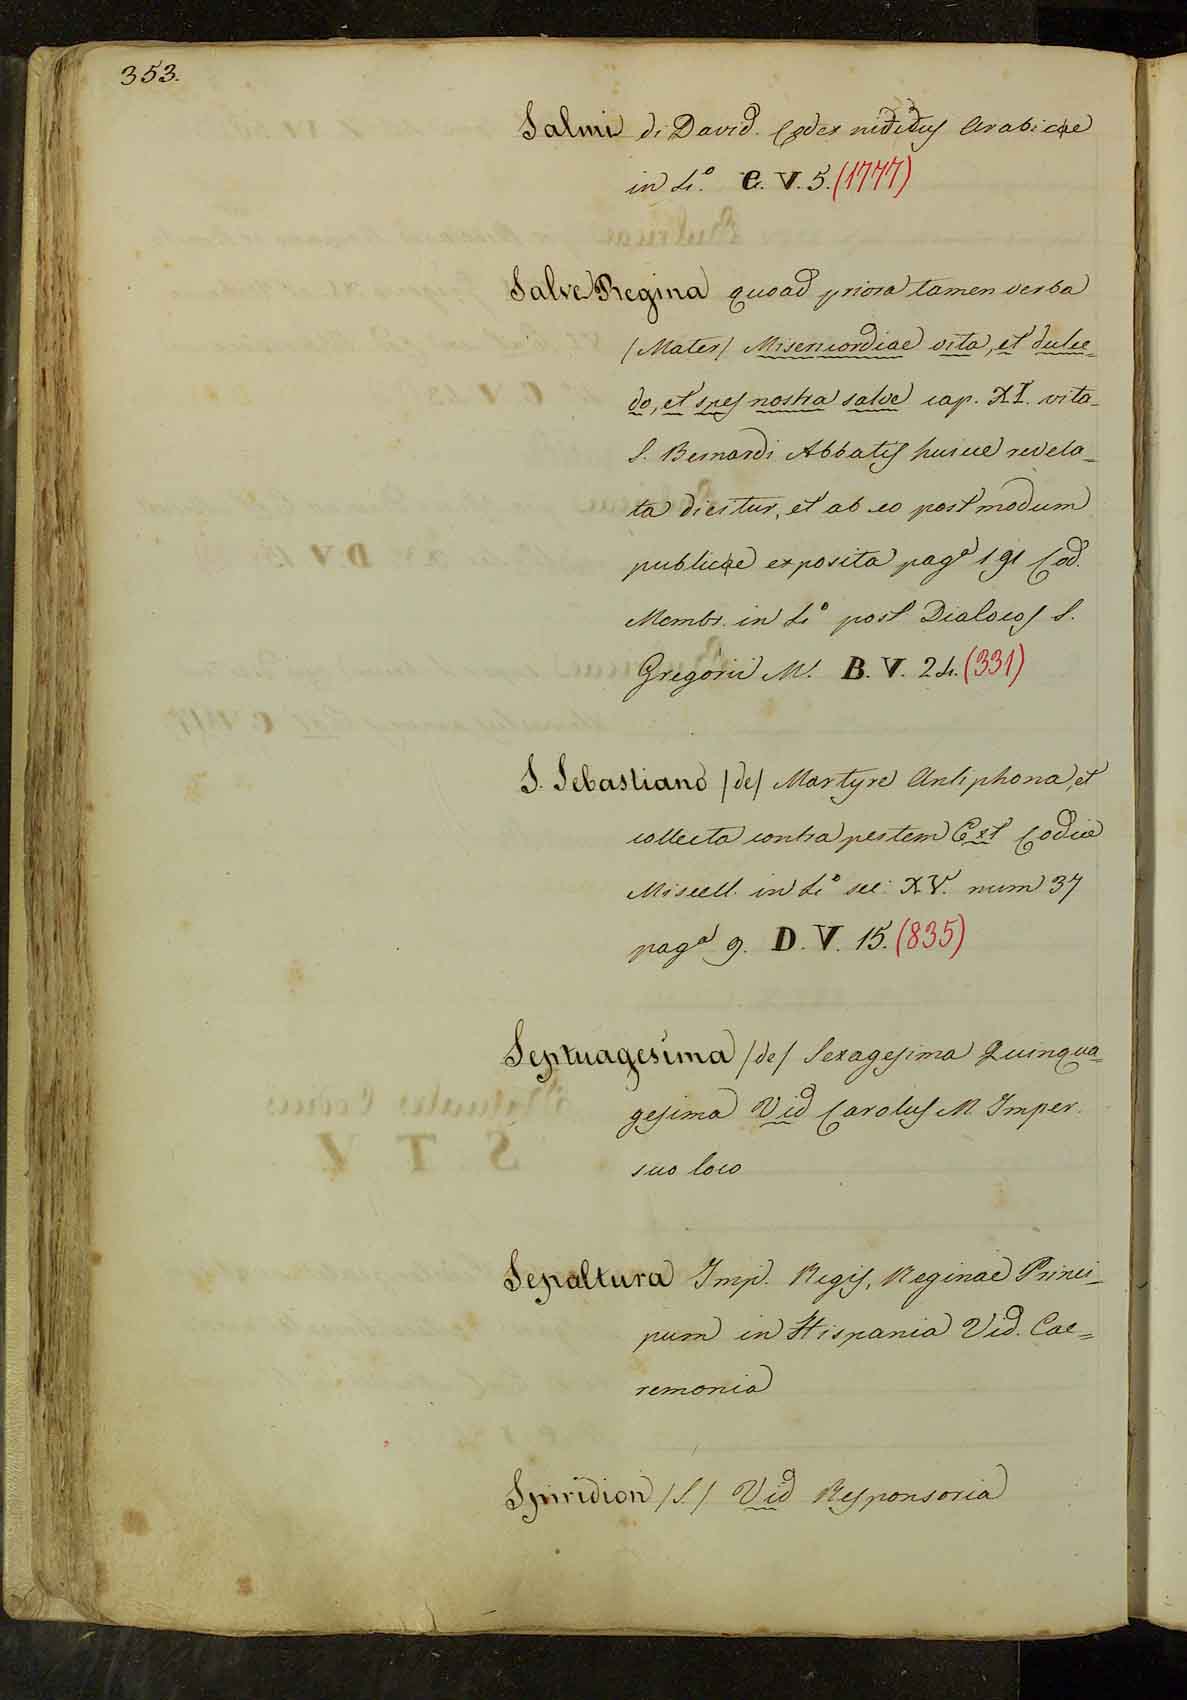 353.
Salmi di David. Codex nitidus Arabicae
in 4.° C. V. 5. (1777)
Salve Regina quoad priora tamen verba
(Mater) Misericordiae vita, et dulce=
do, et spes nostra salve cap. XI. vita
S. Bernardi Abbatis huice revela=
ta dicitur, et ab eo post modum
publicae exposita pag.ª 191 Cod.
Membr. in 4.° post Dialocos S.
Gregorii M. B. V. 24. (331)
S. Sebastiano (de) Martyre Antiphona, et
collecta contra pestem Ext Codice
Miscell. in 4.° sec: XV. num 37
pag.ª 9. D. V. 15. (835)
Septuagesima (de) Sexagesima Quinqua=
gesima Vid Carolus M. Imper.
suo loco
Sepaltura Imp. Regis, Reginae Princi=
pum in Hispania Vid. Cae=
remonia
Spiridion (S.) Vid Responsoria